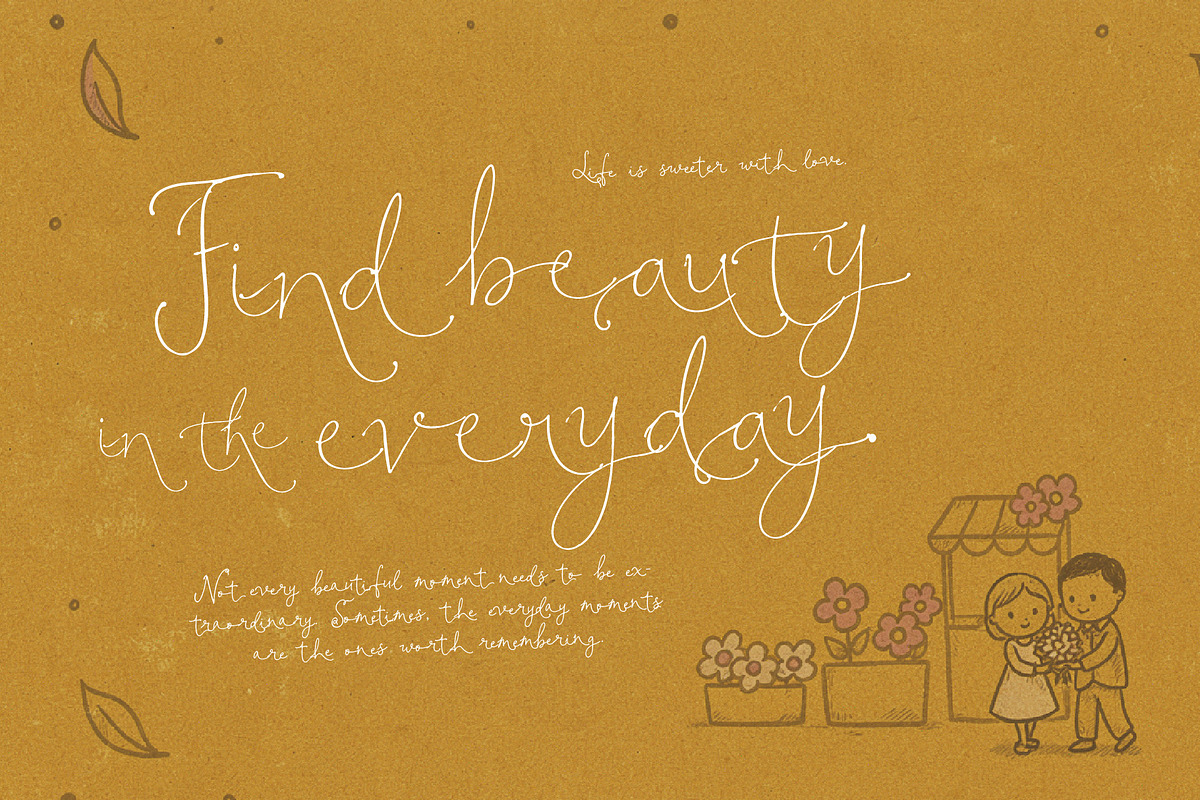 Life is sweeter with love.
Find beauty
in the everyday.
Not every beautiful moment needs to be ex-
traordinary. Sometimes, the everyday moments
are the ones worth remembering.